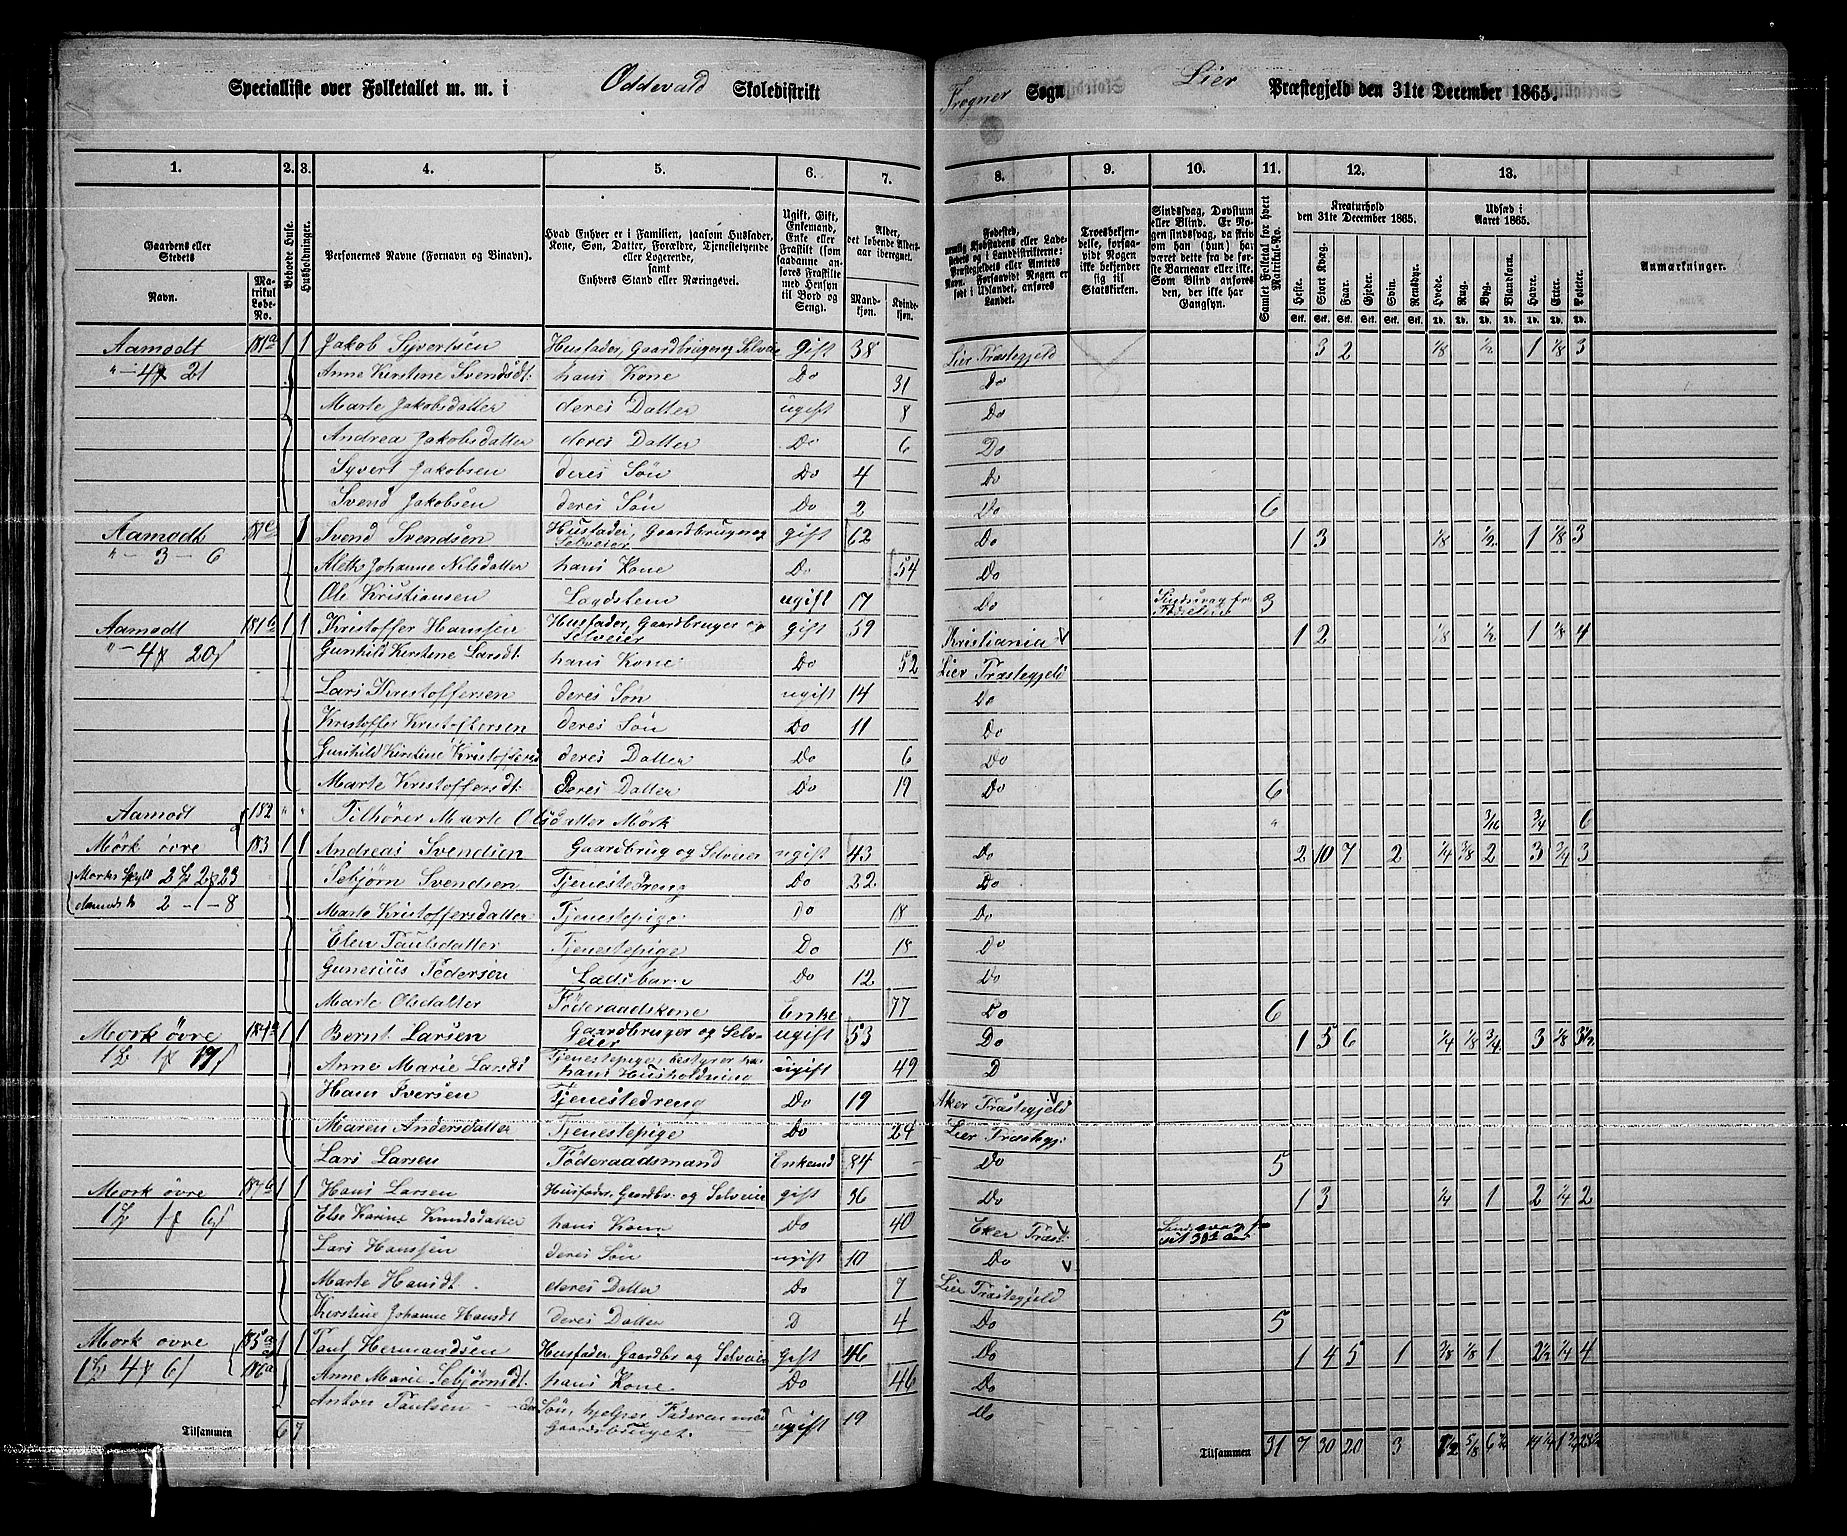 Specialliste over Folketallet m. m. i Oddevald Skoledistrikt Frogner Sogn Lier Præstegjeld den 31te December 1865.
1. 2. 3. 4. 5. 6. 7. 8. 9. 10. 11. 12. 13.
Gaardens eller Stedets Navn. Matrikul Løbe-No. Beboede Huse. Husholdninger. Personernes Navne (Fornavn og Binavn). Hvad Enhver er i Familien, saasom Husfader, Kone, Søn, Datter, Forældre, Tjenestetyende eller Logerende, samt Enhvers Stand eller Næringsvei. Ugift, Gift, Enkemand, Enke eller Fraskilt (som saadanne anføres Fraskilte med Hensyn til Bord og Seng). Alder, det løbende Aldersaar iberegnet. Mandkjøn. Kvindekjøn.
Fødested, nemlig Kjøbstadens eller Ladestedets og i Landdistrikterne: Præstegjeldets eller Amtets Navn. Forsaavidt Nogen er født i Udlandet, anføres Landet. Troesbekjendelse, forsaavidt Nogen ikke bekjender sig til Statskirken. Sindssvag, Døvstum eller Blind. Er Nogen sindssvag, da skrives om han (hun) har været dette fra de første Barneaar eller ikke. Som Blind anføres, der ikke har Gangsyn. Samlet Folketal for hvert Matrikul-No. Kreaturhold den 31te December 1865. Udsæd i Aaret 1865. Anmærkninger.
Heste. Stort Kvæg. Faar. Gjeder. Svin. Rensdyr. Hvede. Rug. Byg. Blandkorn. Havre. Erter. Poteter.
Aamodt 181a 1 1 Jakob Syvertsen Husfader, Gaardbruger og Selveier Gift 38 Lier Præstegjeld 3 2 1/8 1/2 1 1/8 3
Anne Kirstene Svendsdt. hans Kone Do 31 Do
Marte Jakobsdatter deres Datter ugift 8 Do
Andrea Jakobsdatter deres Datter Do 6 Do
Syvert Jakobsen deres Søn Do 4 Do
Svend Jakobsen deres Søn Do 2 Do 6
Aamodt 1 Svend Svendsen Husfader, Gaardbruger og Selveier gift 62 Do 1 3 1/8 1/2 1 1/8 3
" - 3 - 6 Johanne Nilsdatter hans Kone Do 54 Do
Ole Kristiansen ugift 17 Do 3
Aamodt 181b 1 1 Kristoffer Hansen Husfader, Gaardbruger og Selveier gift 59 Kristiania 1 2 1/8 1/2 1 1/8 4
Gunhild Kirstene Larsdt. hans Kone Do 52 Lier Præstegjeld
Lars Kristoffersen deres Søn ugift 14 Do
Kristoffer Kristoffersen deres Søn Do 11 Do
Gunhild Kirstine Kristoffersd deres Datter Do 6 Do
Marte Kristoffersdt. Deres Datter Do 19 Do 6
Aamodt 182 " " Tilhører Marte Olsdatter Mørk " 3/16 3/4 6
Mørk øvre 183 1 1 Andreas Svendsen Gaardbrug og Selveier ugift 43 Do 2 10 7 2 1/4 3/8 2 3 3/4 3
Svendsen Tjenestedreng Do 22 Do
Aamodts 2 - 1 - 8 Marte Kristoffersdatter Tjenestepige Do 18 Do
Elen Paulsdatter Tjenestepige Do 18 Do
Gunerius Pedersen Do 12 Do
Marte Olsdatter Føderaadskone Enke 77 Do 6
Mørk øvre 184a 1 1 Bernt Larsen Gaardbruger og Selveier ugift 53 Do 1 5 6 1/4 1/8 3/4 3 1/8 3 1/2
Anne Marie Larsdt Tjenestepige, bestyrer hans Husholdning ugift 49 D
Hans Iversen Tjenestedreng Do 19 Aker Præstegjeld
Maren Andersdatter Tjenestepige Do 24 Lier Præstegj
Lars Larsen Føderaadsmand Enkemd 84 Do 5
Mørk øvre 184b 1 1 Hans Larsen Husfader, Gaardbr. og Selveier gift 36 Do 1 3 1/4 1 2 1/4 2
Else Karine Knudsdatter hans Kone Do 40 Eker Præst.
Lars Hanssen deres Søn ugift 10 Do
Marte Hansdt. deres Datter Do 7 Lier Præstegjeld
Kirstine Johanne Hansdt Deres Datter D 4 Do 5
Mørk øvre 185a 1 1 Paul Hermandsen Husfader, Gaardbr og Selveier Gift 46 Do 1 4 5 1 3/8 1/8 1 2 1/2 1/4 4
186a Anne Marie hans Kone Do 46 Do
Anton Paulsen Søn, hjelper Faderen med Gaardsbruget. ugift 19 Do
Tilsammen 6 7 Tilsammen 31 7 30 20 3